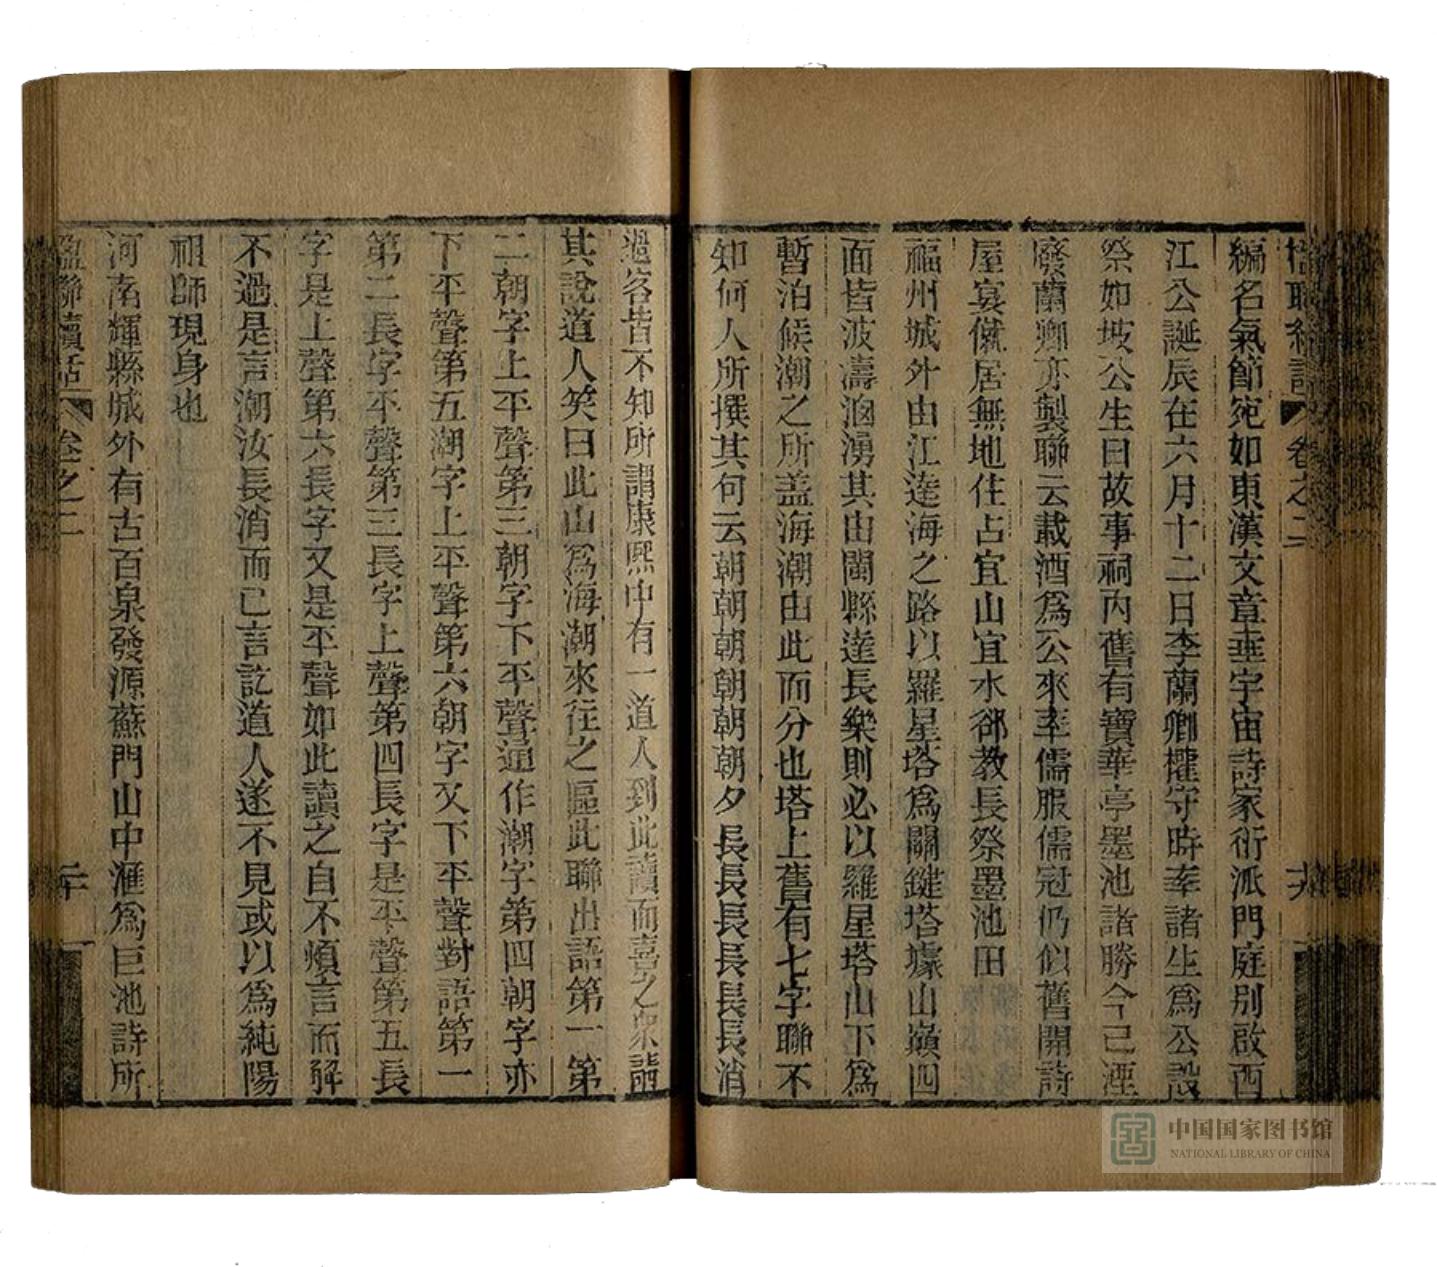 楹聯續話 卷之二 十九
編名氣節宛如東漢文章垂宇宙詩家衍派門庭别啟西
江公誕辰在六月十二日李蘭卿權守時率諸生爲公設
祭如坡公生日故事祠内舊有寶華亭墨池諸勝今已湮
廢蘭卿亦製聯云載酒爲公來率儒服儒冠仍似舊開詩
屋宴僦居無地住占宜山宜水鄒教長祭墨池田
福州城外由江達海之路以羅星塔爲關鍵塔據山巔四
面皆波濤洶湧其由閩縣達長樂則必以羅星塔山下爲
暫泊候潮之所盖海潮由此而分也塔上舊有七字聯不
知何人所撰其句云朝朝朝朝朝朝夕長長長長長長消
過客皆不知所謂康熙中有一道人到此讀而喜之衆詣
其說道人笑曰此山爲海潮來往之區此聯出語第一第
二朝字上平聲第三朝字下平聲通作潮字第四朝字亦
下平聲第五潮字上平聲第六朝字又下平聲對語第一
第二長字平聲第三長字上聲第四長字是平聲第五長
字是上聲第六長字又是平聲如此讀之自不煩言而解
不過是言潮汝長消而已言訖道人遂不見或以爲純陽
祖師現身也
河南輝縣城外有古百泉發源蘇門山中滙爲巨池詩所
楹聯續話 卷之二 二十
中国国家图书馆
NATIONAL LIBRARY OF CHINA